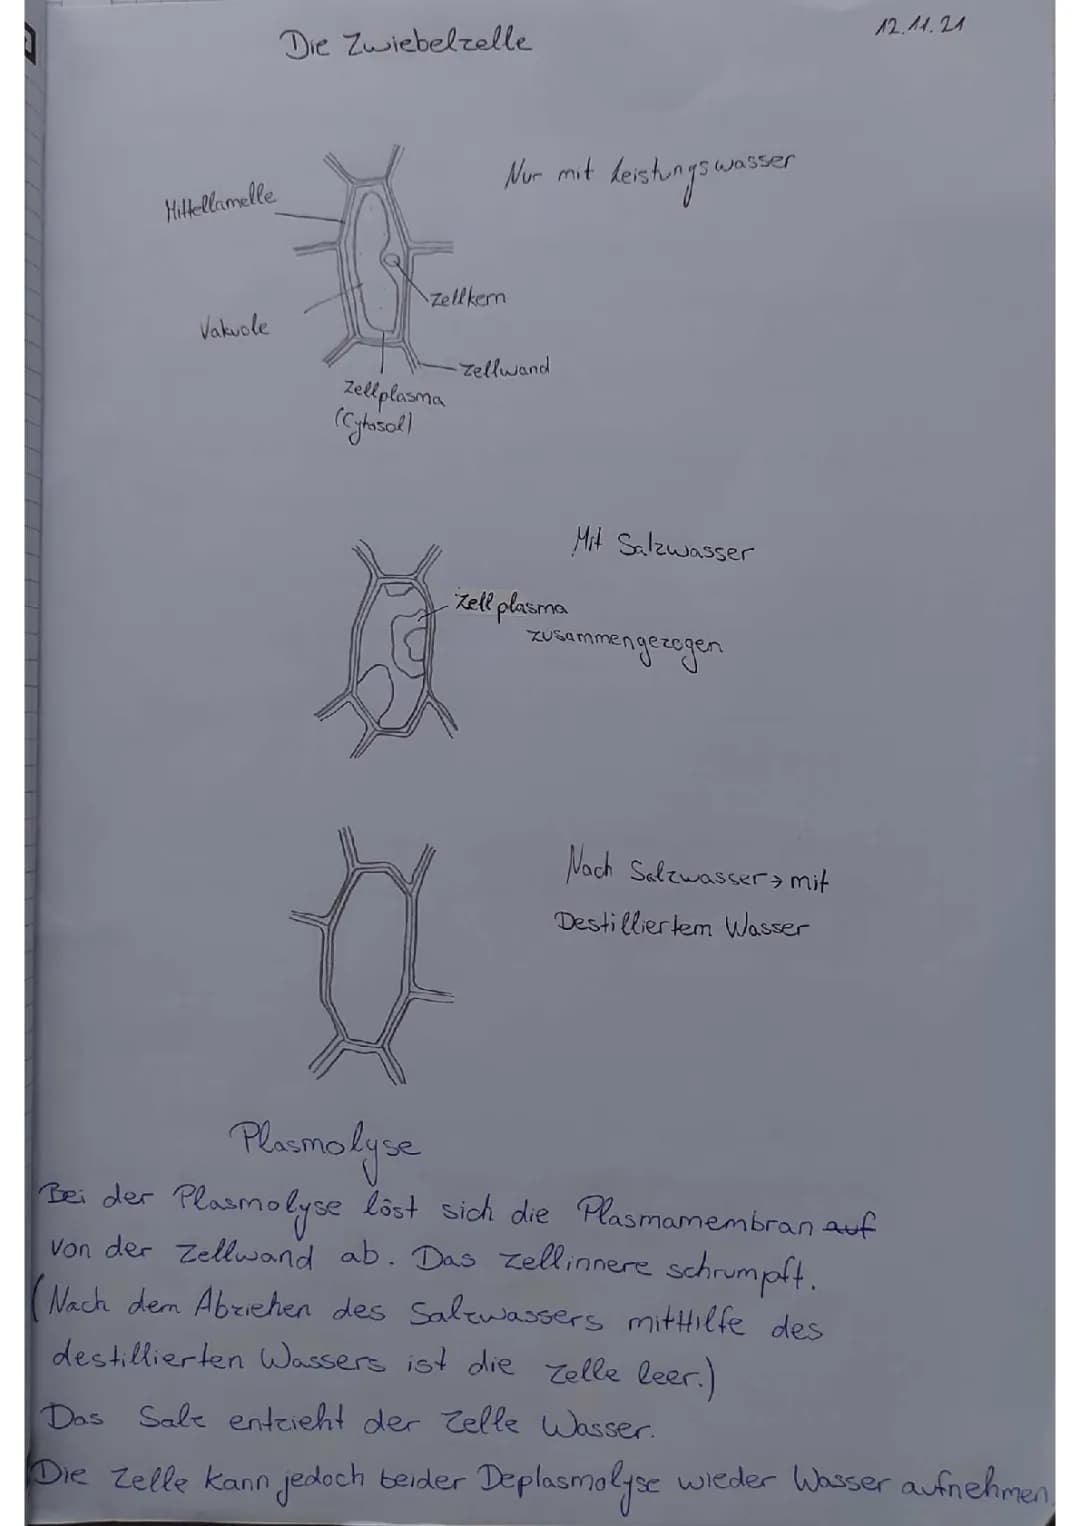 12.11.21
Die Zwiebelzelle
Nur mit Leistungswasser
Mittellamelle
Zellkern
Vakuole
Zellwand
Zellplasma
(Cytosol)
Mit Salzwasser
Zellplasma
zusammengezogen
Nach Salzwasser → mit
Destilliertem Wasser
Plasmolyse
Bei der Plasmolyse löst sich die Plasmamembran auf
von der Zellwand ab. Das Zellinnere schrumpft.
(Nach dem Abziehen des Salzwassers mitHilfe des
destillierten Wassers ist die Zelle leer.)
Das Salz entzieht der Zelle Wasser.
Die Zelle kann jedoch beider Deplasmolyse wieder Wasser aufnehmen.